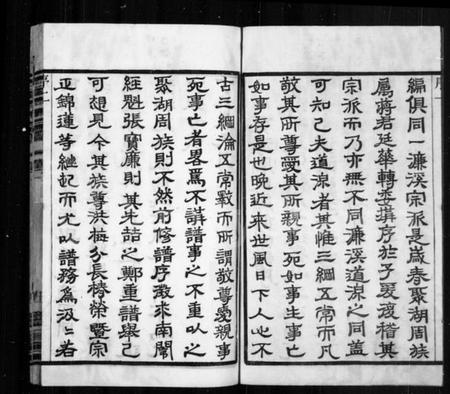 編俱同一濂溪宗派是歲春聚湖周族
屬蔣君廷華轉委譔序於予爰稽其
宗派而乃亦無不同濂溪道源之同蓋
可知已夫道源者其惟三綱五常而凡
敬其所尊愛其所親事死如事生事亡
如事存是也晩近來世風日下人心不
古三綱淪五常斁而所謂敬尊愛親事
死事亡者畧爲不講譜事之不重以之
聚湖周族則不然前修譜序敦來南閣
經魁張寶廉則其先喆之鄭重譜舉已
可想見今其族尊洪梅分長椿榮暨宗
正錦蓮等繼起而尤以譜務爲汲〻若
序二